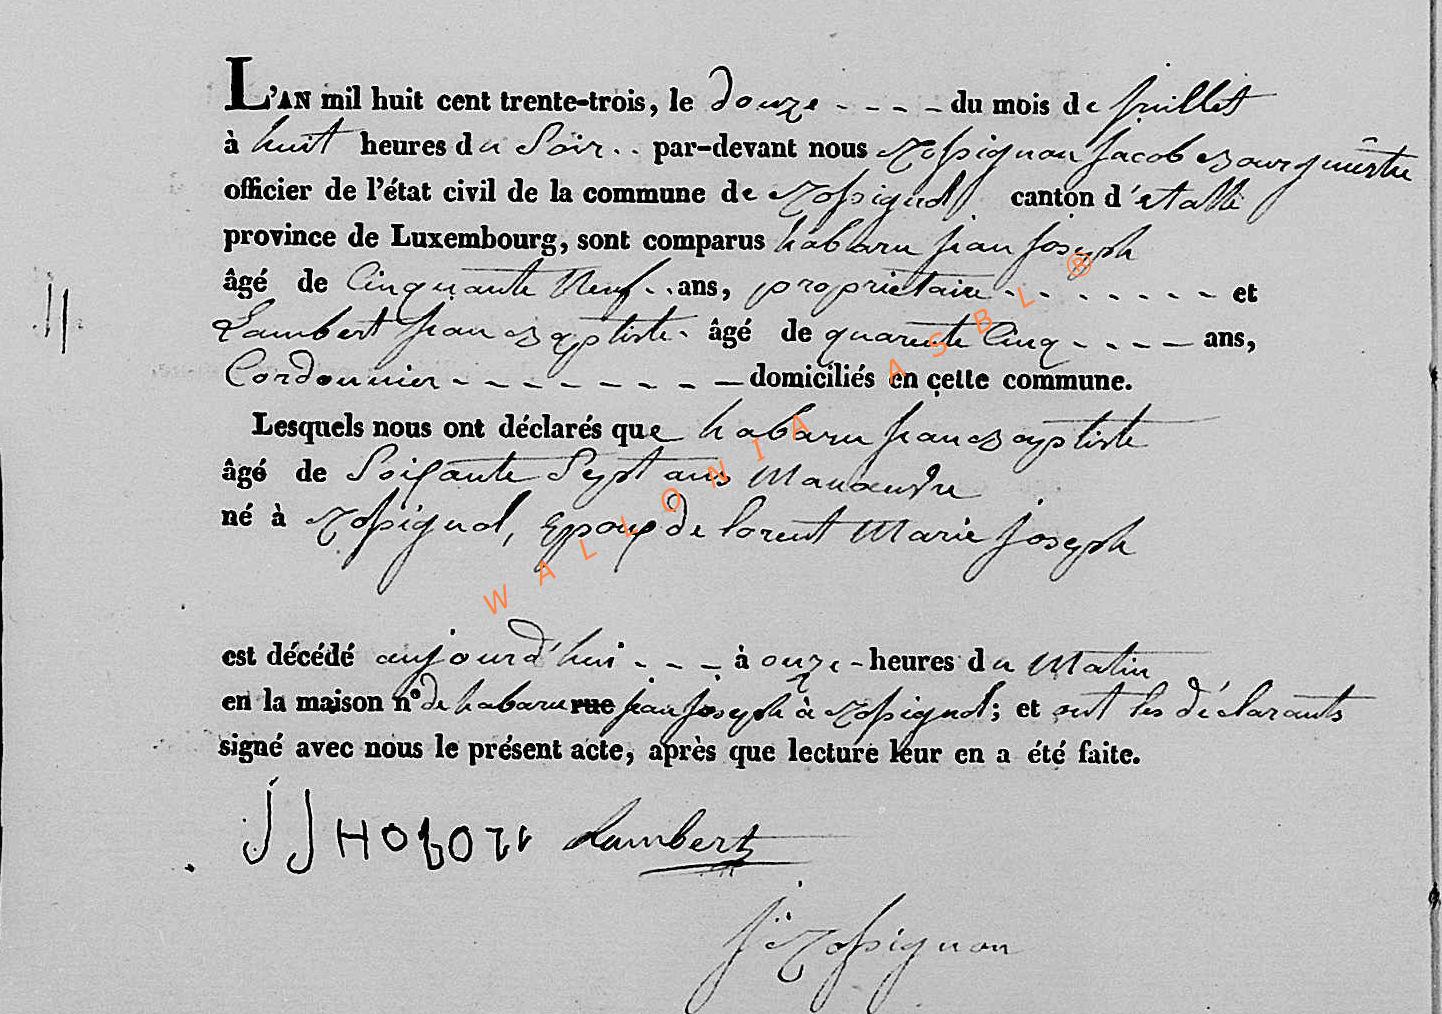 L'AN mil huit cent trente-trois, le douze - - - - du mois de juillet
à huit heures du Soir . . par-devant nous Rossignon Jacob Bourguemestre
officier de l'état civil de la commune de Rossignol canton d'etalle
province de Luxembourg, sont comparus habaru jean joseph
âgé de Cinquante Neuf . . ans, propriétaire - - - - - - - - et
Lambert jean Baptiste - âgé de quarente Cinq - - - - ans,
11
Cordonnier - - - - - - - - domiciliés en cette commune.
Lesquels nous ont déclarés que habaru jean Baptiste
âgé de Soixante Sept ans Manoeuvre
né à Rossignol, Epoux de lorent Marie joseph
est décédé aujourd'hui - - - à onze - heures du Matin
en la maison n° de habaru rue jean joseph à Rossignol; et ont les déclarants
signé avec nous le présent acte, après que lecture leur en a été faite.
JJ HABARU Lambert
J. Rossignon
WALLONIA ASBL ®